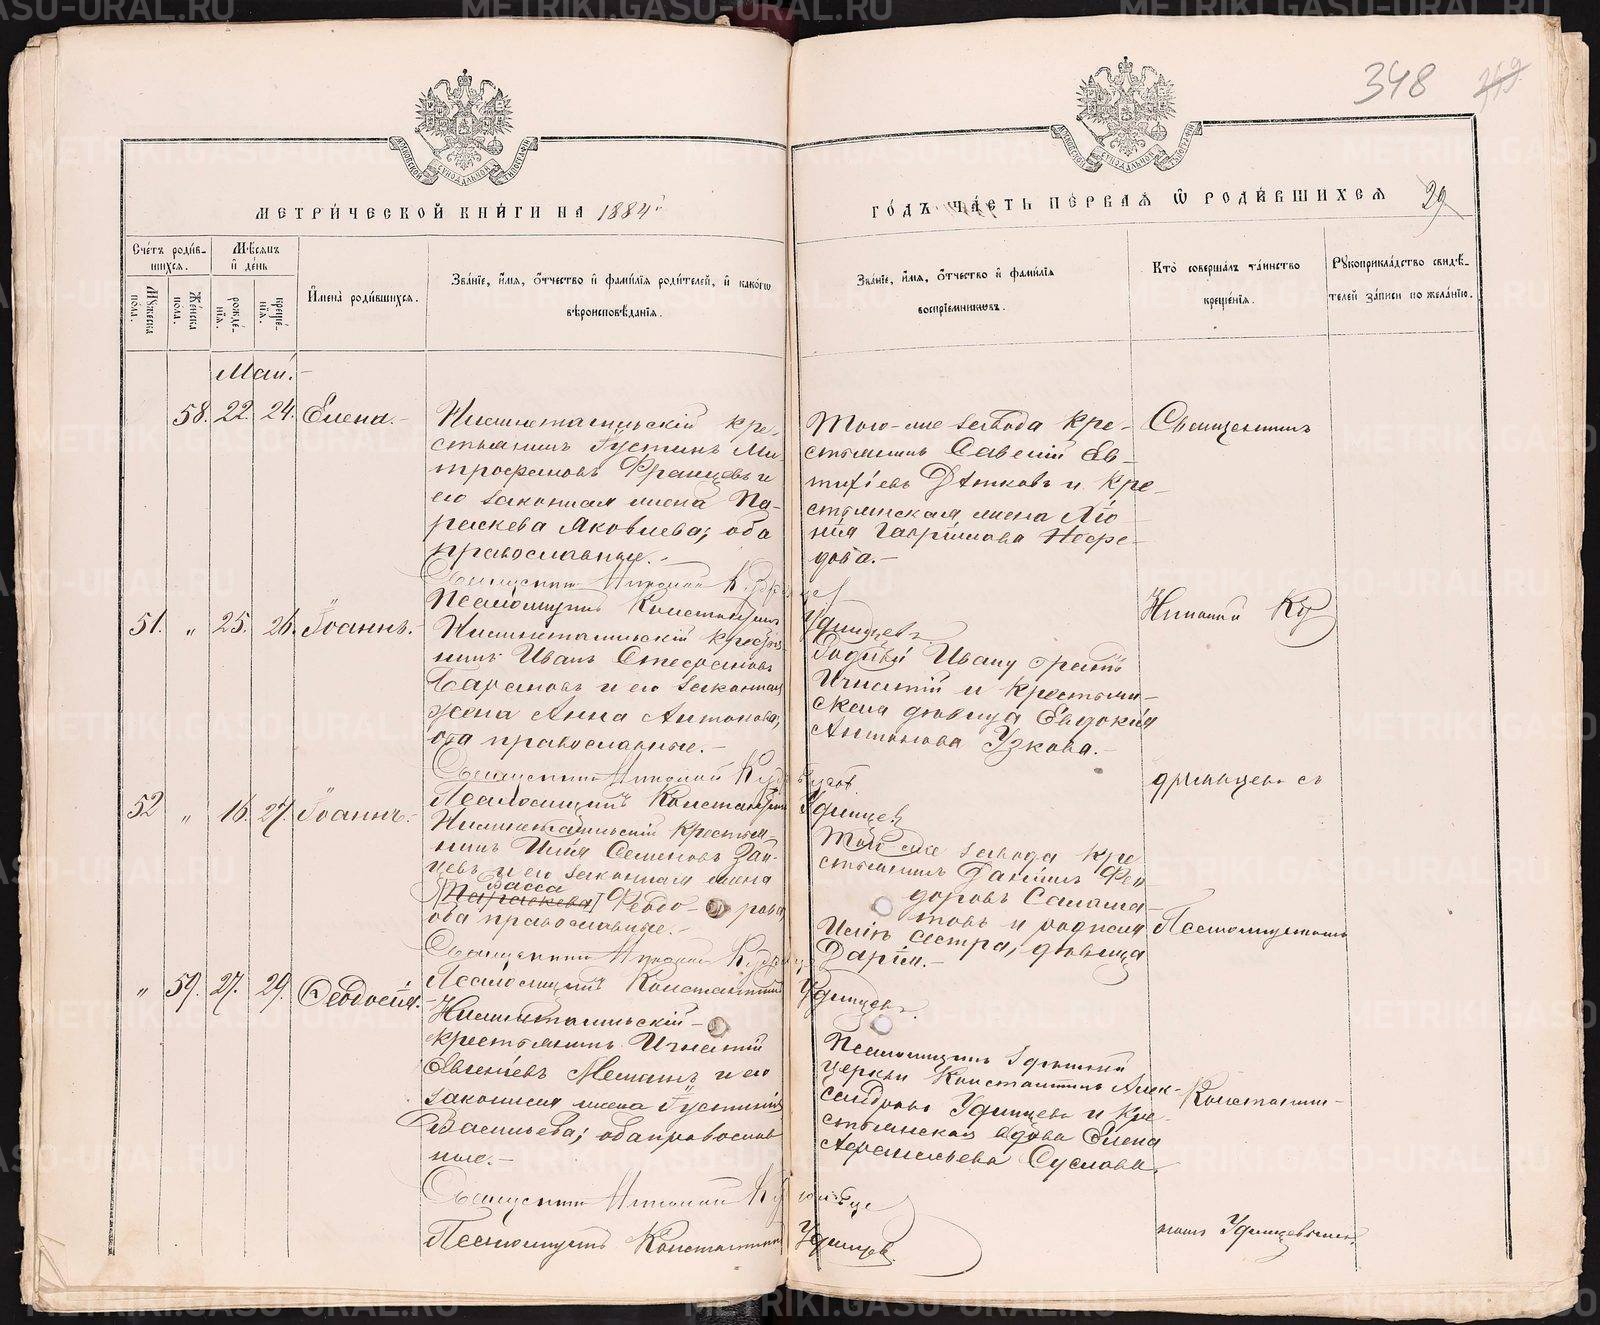 МЕТРИЧЕСКОЙ КНИГИ НА 1884й
ГОДЪ ЧАСТЬ ПЕРВАЯ Ѿ РОДИВШИХСЯ
348
29
Счетъ родившихся.
Мужеска пола.
Женска пола.
Мѣсяцъ и день
рожденія.
крещенія.
Имена родившихся.
Званіе, имя, отчество и фамилія родителей, и какого
вѣроисповѣданія.
Званіе, имя, отчество и фамилія
воспріемниковъ.
Кто совершалъ таинство
крещенія.
Рукоприкладство свидѣ-
телей записи по желанію.
Май.
58. 22. 24. Елена.
Нижнетагильскій кре-
стьянинъ Іустинъ Ми-
трофановъ Францевъ и
его законная жена Па-
раскева Яковлева; оба
православные.
Того-же завода кре-
стьянинъ Савелій Ев-
тихіевъ Дѣтковъ и кре-
стьянская жена
Гавриилова
дова.
Священникъ
Священникъ Николай
Псаломщикъ Константинъ Удинцевъ.
51. " 25. 26. Іоаннъ.
Нижнетагильскій крестья-
нинъ Иванъ Стефановъ
Барановъ и его законная
жена Анна Антонова,
оба православные.
Родной Ивану братъ
Игнатій и крестьян-
ская дѣвица Евдокія
Антонова Узкова.
Николай
Священникъ Николай
Псаломщикъ Константинъ Удинцевъ
52 " 16. 27. Іоаннъ.
Нижнетагильскій крестья-
нинъ Илія Семеновъ Зай-
цевъ и его законная жена
Васса
Параскева Феодо- рова
оба православные.
Того же завода кре-
стьянинъ Даніилъ Фео-
доровъ Салама-
товъ и родная
Иліи сестра, дѣвица
Дарія.
съ
Псаломщикомъ
Священникъ Николай
Псаломщикъ Константинъ Удинцевъ.
" 59. 27. 29. Ѳеодосія.
Нижнетагильскій
крестьянинъ Игнатій
Евгеніевъ и его
законная жена Іустинія
Васильева; оба православ-
ные.
Псаломщикъ здѣшней
церкви Константинъ Алек-
сандровъ Удинцевъ и кре-
стьянская вдова Елена
Суслова.
Константи-
номъ Удинцевымъ.
Священникъ Николай
Псаломщикъ Константинъ Удинцевъ.
METRIKI.GASO-URAL.RU